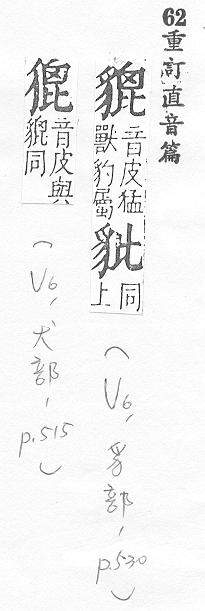 62重訂直音篇
貔 音皮猛
獸豹屬
豼 同
上
（V6，豸部，p.530）
音皮與
貔同
（V6，犬部，p.515）